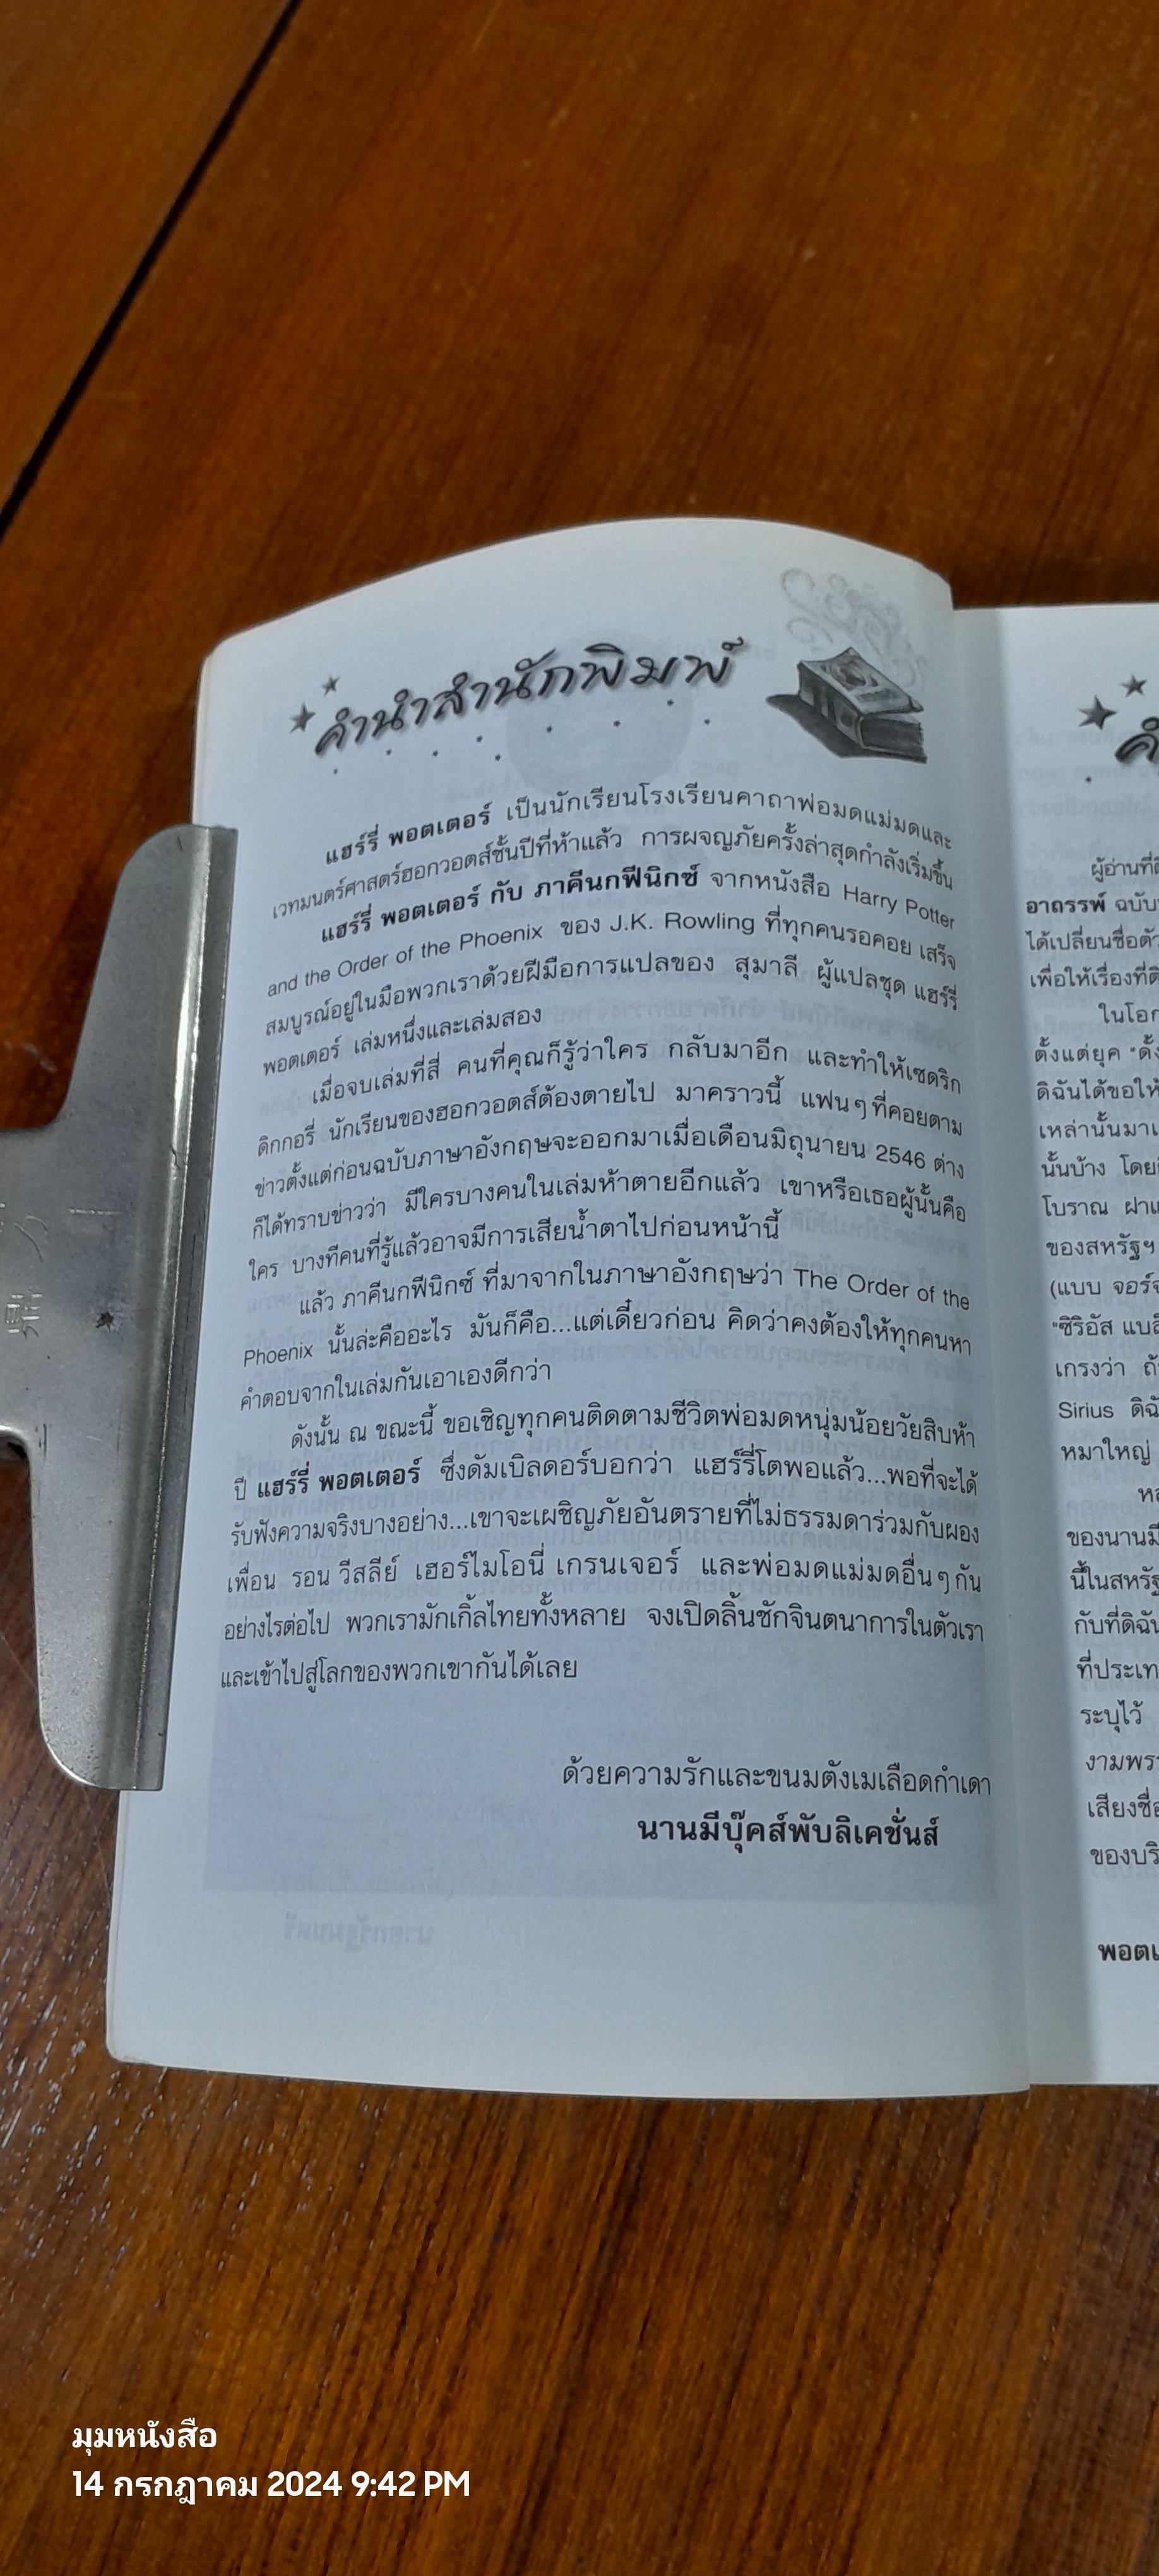 คำนำสำนักพิมพ์
แฮร์รี่ พอตเตอร์ เป็นนักเรียนโรงเรียนคาถาพ่อมดแม่มดและ
เวทมนตร์ศาสตร์ฮอกวอตส์ชั้นปีที่ห้าแล้ว การผจญภัยครั้งล่าสุดกำลังเริ่มขึ้น
แฮร์รี่ พอตเตอร์ กับ ภาคีนกฟีนิกซ์ จากหนังสือ Harry Potter
and the Order of the Phoenix ของ J.K. Rowling ที่ทุกคนรอคอย เสร็จ
สมบูรณ์อยู่ในมือพวกเราด้วยฝีมือการแปลของ สุมาลี ผู้แปลชุด แฮร์รี่
พอตเตอร์ เล่มหนึ่งและเล่มสอง
เมื่อจบเล่มที่สี่ คนที่คุณก็รู้ว่าใคร กลับมาอีก และทำให้เซดริก
ดิกกอรี่ นักเรียนของฮอกวอตส์ต้องตายไป มาคราวนี้ แฟนๆ ที่คอยตาม
ข่าวตั้งแต่ก่อนฉบับภาษาอังกฤษจะออกมาเมื่อเดือนมิถุนายน 2546 ต่าง
ก็ได้ทราบข่าวว่า มีใครบางคนในเล่มห้าตายอีกแล้ว เขาหรือเธอผู้นั้นคือ
ใคร บางทีคนที่รู้แล้วอาจมีการเสียน้ำตาไปก่อนหน้านี้
แล้ว ภาคีนกฟีนิกซ์ ที่มาจากในภาษาอังกฤษว่า The Order of the
Phoenix นั้นล่ะคืออะไร มันก็คือ...แต่เดี๋ยวก่อน คิดว่าคงต้องให้ทุกคนหา
คำตอบจากในเล่มกันเอาเองดีกว่า
ดังนั้น ณ ขณะนี้ ขอเชิญทุกคนติดตามชีวิตพ่อมดหนุ่มน้อยวัยสิบห้า
ปี แฮร์รี่ พอตเตอร์ ซึ่งดัมเบิลดอร์บอกว่า แฮร์รี่โตพอแล้ว...พอที่จะได้
รับฟังความจริงบางอย่าง...เขาจะเผชิญภัยอันตรายที่ไม่ธรรมดาร่วมกับผอง
เพื่อน รอน วีสลีย์ เฮอร์ไมโอนี่ เกรนเจอร์ และพ่อมดแม่มดอื่นๆ กัน
อย่างไรต่อไป พวกเรามักเกิ้ลไทยทั้งหลาย จงเปิดลิ้นชักจินตนาการในตัวเรา
และเข้าไปสู่โลกของพวกเขากันได้เลย
ด้วยความรักและขนมตังเมเลือดกำเดา
นานมีบุ๊คส์พับลิเคชั่นส์
ผู้อ่านที่
อาถรรพ์ ฉบับ
ได้เปลี่ยนชื่อตัว
เพื่อให้เรื่องที่
ในโอก
ตั้งแต่ยุค "ดั้ง
ดิฉันได้ขอให้
เหล่านั้นมา
นั้นบ้าง โดย
โบราณ ฝา
ของสหรัฐฯ
(แบบ จอร์จ
"ซิริอัส แบล
เกรงว่า ถ้
Sirius ดิฉั
หมาใหญ่
ของนานมี
นี้ในสหรัฐ
กับที่ดิฉัน
ที่ประเท
ระบุไว้
งามพร
เสียงชื่อ
ของบริ
พอตเ
มุมหนังสือ
14 กรกฎาคม 2024 9:42 PM